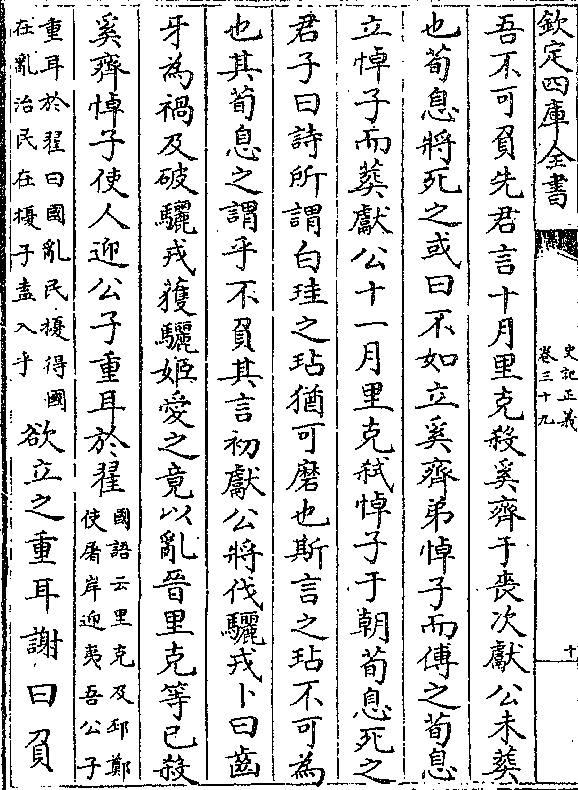 欽定四庫全書
史記正義
卷三十九
十
吾不可負先君言十月里克殺奚齊于喪次獻公未葬
也荀息將死之或曰不如立奚齊弟悼子而傅之荀息
立悼子而葬獻公十一月里克弑悼子于朝荀息死之
君子曰詩所謂白珪之玷猶可磨也斯言之玷不可為
也其荀息之謂乎不負其言初獻公將伐驪戎卜曰齒
牙為禍及破驪戎獲驪姬愛之竟以亂晉里克等已殺
奚齊悼子使人迎公子重耳於翟
國語云里克及邳鄭
使屠岸迎夷吾公子
重耳於翟曰國亂民擾得國
在亂治民在擾子盍入乎
欲立之重耳謝曰負